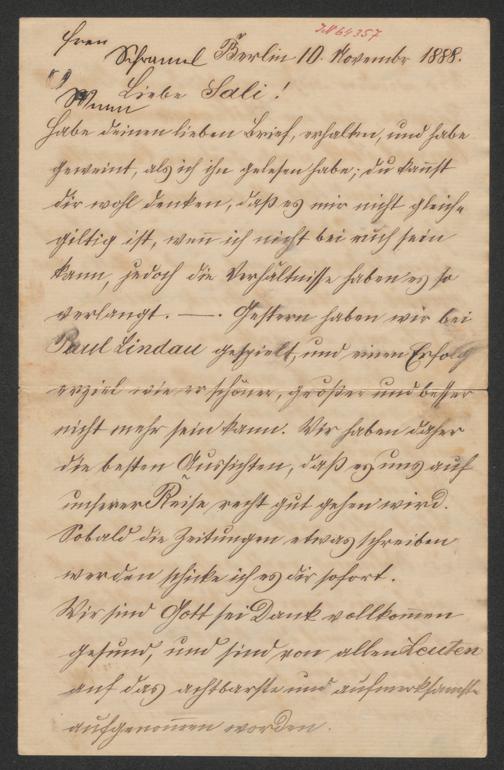 IN 64357
Hrn
Schrammel Berlin 10. Novembr 1888.
Wien
Liebe Sali!
Habe deinen lieben Brief, erhalten, und habe
geweint, als ich ihn gelesen habe; du kannst
dir wohl denken, daß es mir nicht gleich-
giltig ist, wen̅ ich nicht bei euch sein
kann, jedoch die Verhältnisse haben es so
verlangt. —. Gestern haben wir bei
Paul Lindau gespielt, und einen Erfolg
erziel wie er schöner, größer und besser
nicht mehr sein kann. Wir haben daher
die besten Aussichten, daß es uns auf
unserer Reise recht gut gehen wird.
Sobald die Zeitungen etwas schreiben
werden schicke ich es dir sofort.
Wir sind Gott sei Dank vollkom̅en
gesund, und sind von allen Leuten
auf das achtbarste und aufmerksamste
aufgenom̅en worden.